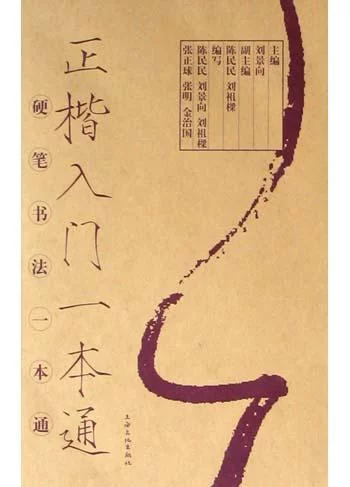 正楷入门一本通
硬笔书法一本通
主编
刘景向
副主编
陈民民 刘祖樑
编写
陈民民 刘景向 刘祖樑
张正球 张明 金治国
上海文化出版社